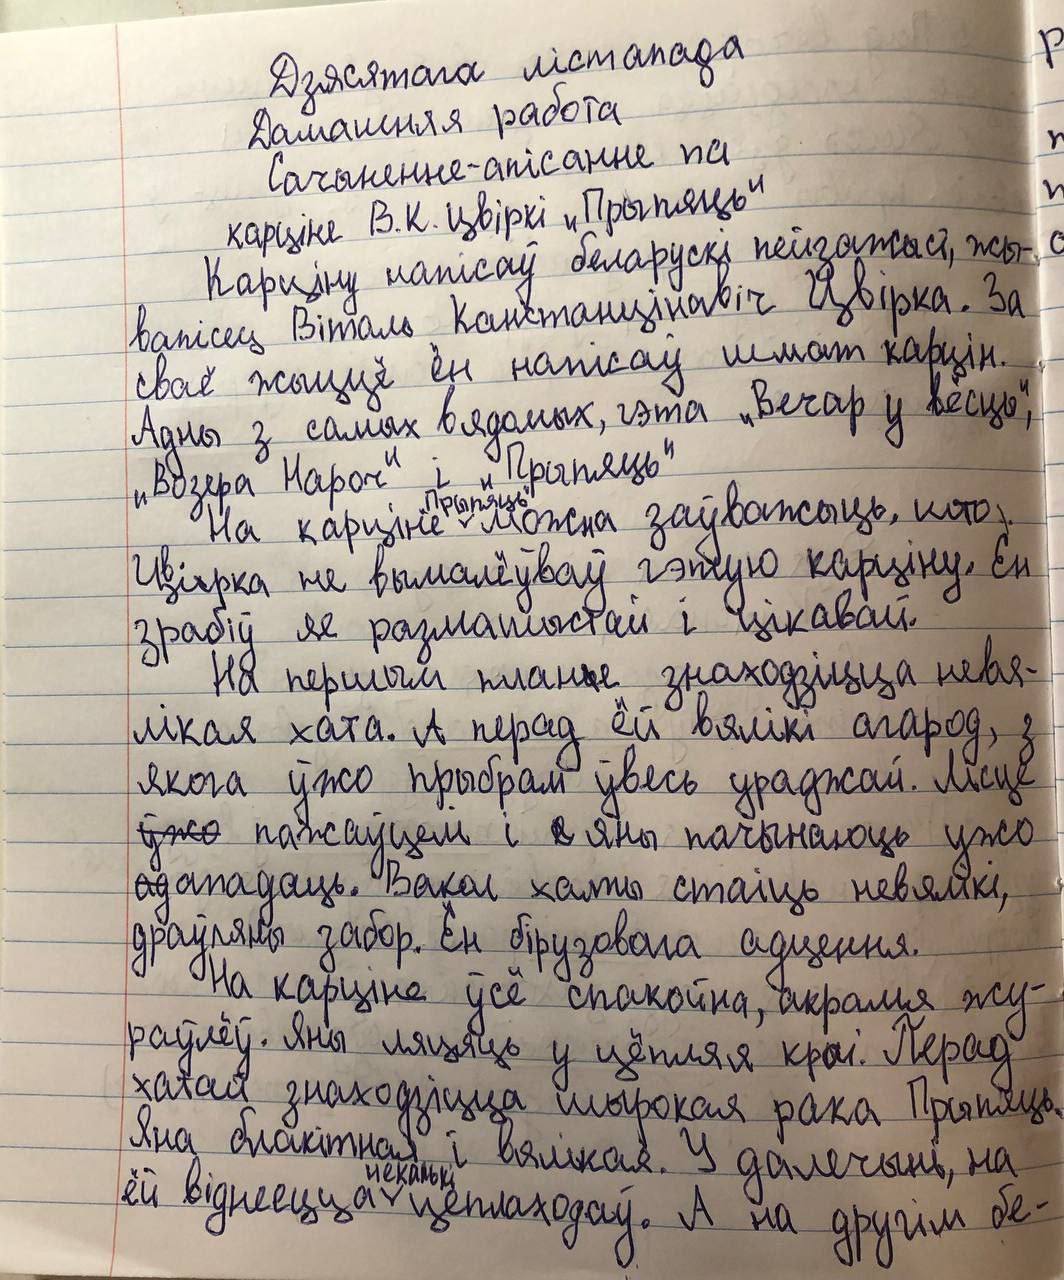 Дзясятага лістапада
Дамашняя работа
Сачыненне-апісанне па
карціне В.К. Цвіркі „Прыпяць"
Карціну напісаў беларускі пейзажыст, жы-
вапісец Віталь Канстанцінавіч Цвірка. За
сваё жыццё ён напісаў шмат карцін.
Адны з самых вядомых, гэта „Вечар у вёсцы",
„Возера Нароч" і „Прыпяць"
На карціне „Прыпяць" можна заўважыць, што
Цвірка не вымалёўваў гэтую карціну. Ён
зрабіў яе размашыстай і цікавай.
На першым плане знаходзіцца невя-
лікая хата. А перад ёй вялікі агарод, з
якога ўжо прыбралі ўвесь ураджай. Лісце
ўжо пажаўцелі і яны пачынаюць ужо
ападаць. Вакол хаты стаіць невялікі,
драўляны забор. Ён бірузовага адцення.
На карціне ўсё спакойна, акрамя жу-
раўлёў. Яны ляцяць у цёплыя краі. Перад
хатай знаходзіцца шырокая рака Прыпяць.
Яна блакітная і вялікая. У далечыні, на
ёй віднеецца некалькі цеплаходаў. А на другім бе-